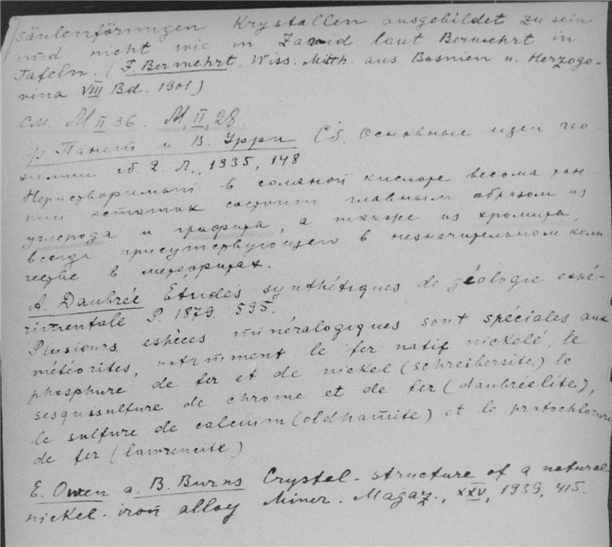 säulenförmigen Krystallen ausgebildet zu sein
und nicht wie in Zavid laut Bermehrt in
Tafeln. (F. Bermehrt. Wiss. Mitth. aus Bosnien u. Herzogo-
vina VIII Bd. 1901)
см. M II 36. M, II, 28
Ф. Панет и В. Урри Сб. Основные идеи гео
химии сб 2. Л., 1935, 148
Нерастворимый в соляной кислоте весьма тон
кий остаток состоит главным образом из
углерода и графита, а также из хромита,
всегда присутствующего в незначительном коли
честве в метеоритах.
A. Daubrée Etudes synthétiques de géologie expé-
rimentale P. 1879. 595.
Plusiours espèces minéralogiques sont spéciales aux
météorites, notamment le fer natif nickelé, le
phosphure de fer et de nickel (schreibersite) le
sesquisulfure de chrome et de fer (daubréelite),
le sulfure de calcium (oldhamite) et le protochlorure
de fer (lawrencite)
E. Owen a. B. Burns Crystal-structure of a natural
nickel-iron alloy Miner. Magaz., XXV, 1939, 415.